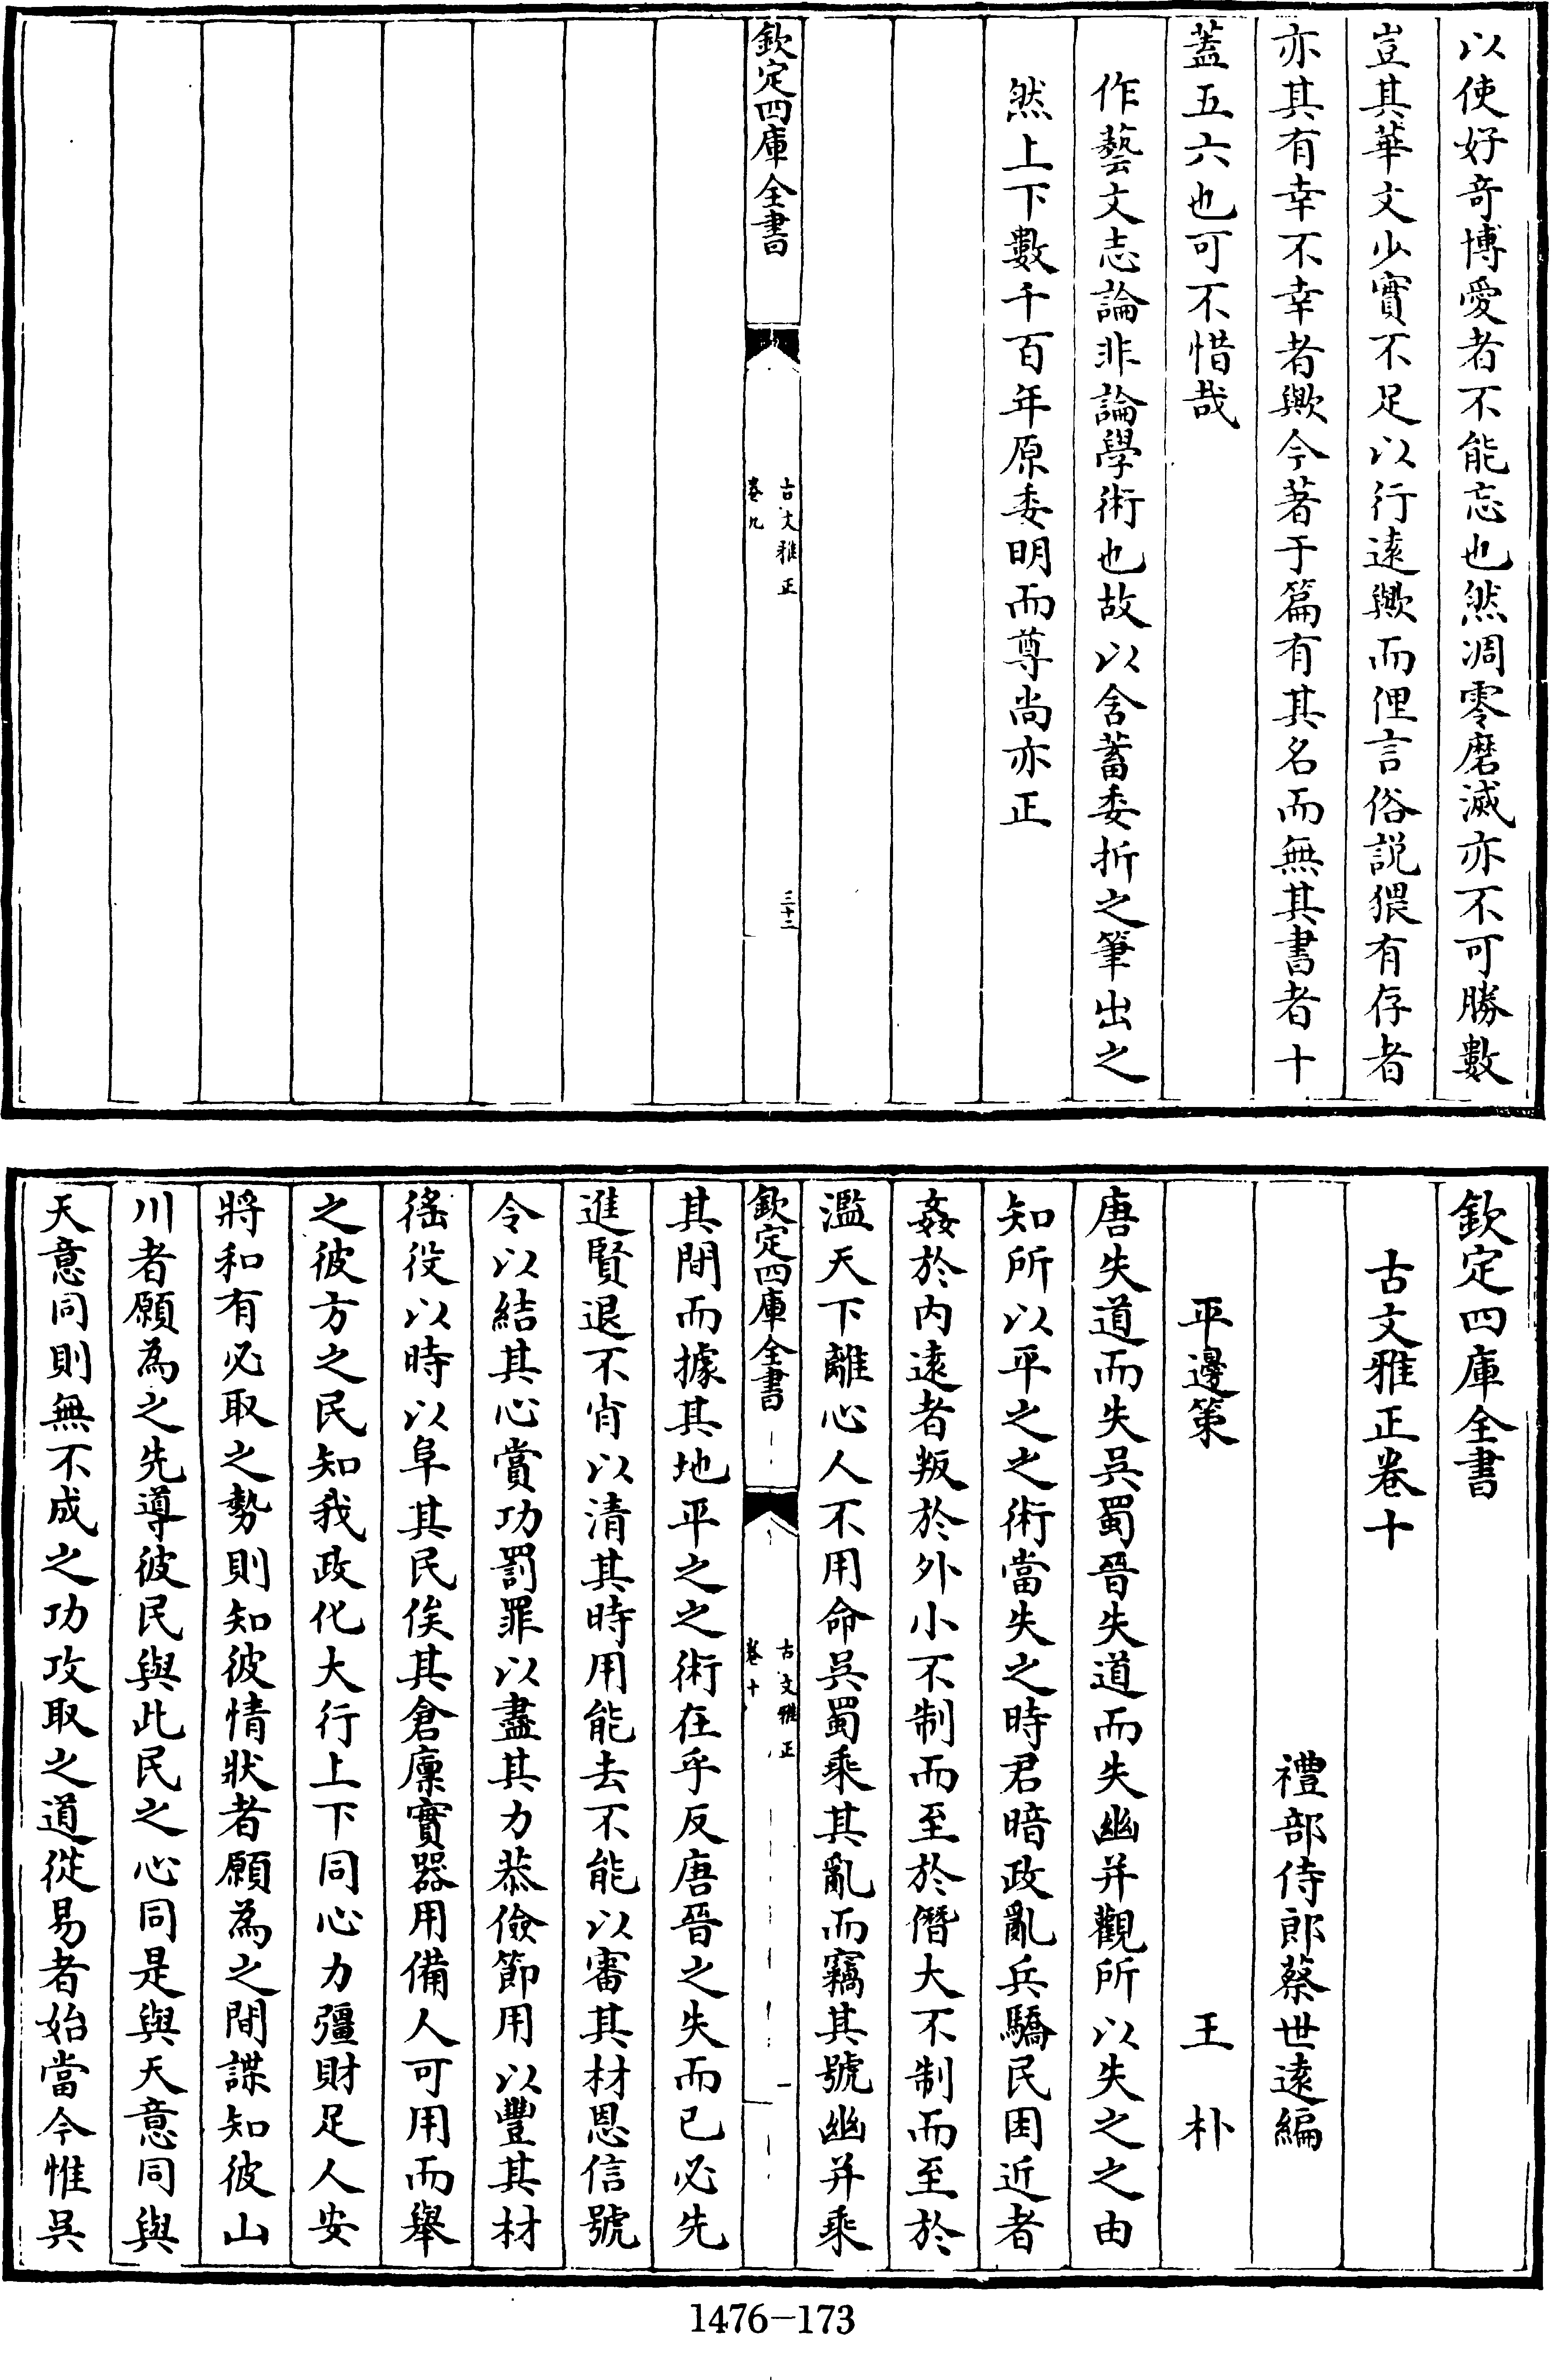 以使好奇博愛者不能忘也然凋零磨滅亦不可勝數
豈其華文少實不足以行遠歟而俚言俗説猥有存者
亦其有幸不幸者歟今著于篇有其名而無其書者十
蓋五六也可不惜哉
作藝文志論非論學術也故以含蓄委折之筆出之
然上下數千百年原委明而尊尚亦正
欽定四庫全書
古文雅正
卷九
三十二
欽定四庫全書
古文雅正卷十
禮部侍郎蔡世遠編
平邊策
王朴
唐失道而失吳蜀晉失道而失幽并觀所以失之之由
知所以平之之術當失之時君暗政亂兵驕民困近者
姦於内遠者叛於外小不制而至於僭大不制而至於
濫天下離心人不用命吳蜀乘其亂而竊其號幽并乘
欽定四庫全書
古文雅正
卷十
一
其間而據其地平之之術在乎反唐晉之失而已必先
進賢退不肖以清其時用能去不能以審其材恩信號
令以結其心賞功罰罪以盡其力恭儉節用以豐其材
徭役以時以阜其民俟其倉廩實器用備人可用而舉
之彼方之民知我政化大行上下同心力彊財足人安
將和有必取之勢則知彼情狀者願為之間諜知彼山
川者願為之先導彼民與此民之心同是與天意同與
天意同則無不成之功攻取之道從易者始當今惟吳
1476-173